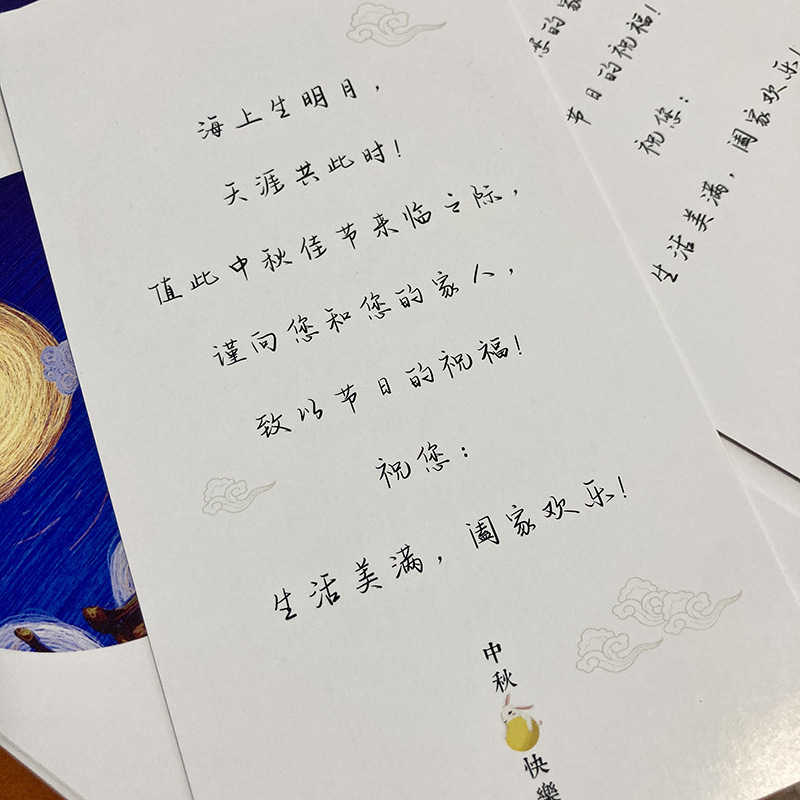 海上生明月，
天涯共此时！
值此中秋佳节来临之际，
谨向您和您的家人，
致以节日的祝福！
祝您：
生活美满，阖家欢乐！
中秋
快樂
您的家
节日的祝福！
祝您：
生活美满，阖家欢乐！